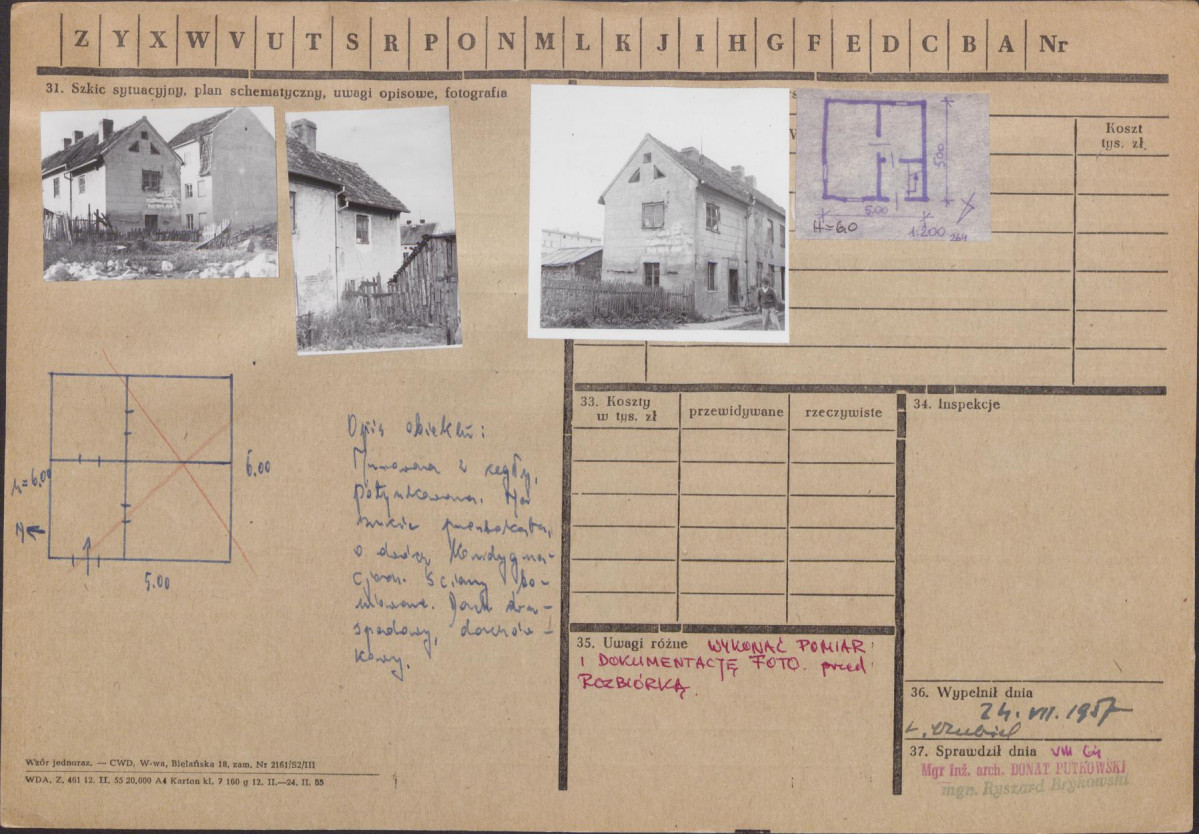 Z Y X W V U T S R P O N M L K J I H G F E D C B A Nr
31. Szkic sytuacyjny, plan schematyczny, uwagi opisowe, fotografia
Koszt
tys. zł
500
5.00
H=6.0
1:200
264
h=6.00
6.00
N
5.00
Opis obiektu:
Murowana z cegły,
potynkowana. Na
rzucie prostokąta,
o dwóch kondygna-
cjach. Ściany bo-
niowane. Dach dwu-
spadowy, dachów-
kowy.
33. Koszty
w tys. zł
przewidywane
rzeczywiste
34. Inspekcje
35. Uwagi różne WYKONAĆ POMIAR
I DOKUMENTACJĘ FOTO. przed
ROZBIÓRKĄ.
36. Wypełnił dnia
24. VII. 1957
37. Sprawdził dnia VIII 64
Mgr inż. arch. DONAT PUTKOWSKI
mgr. Ryszard Brykowski
Wzór jednoraz. — CWD, W-wa, Bielańska 18, zam. Nr 2161/S2/III
WDA, Z. 461 12. II. 55 20.000 A4 Karton kl. 7 160 g 12. II.—24. II. 55